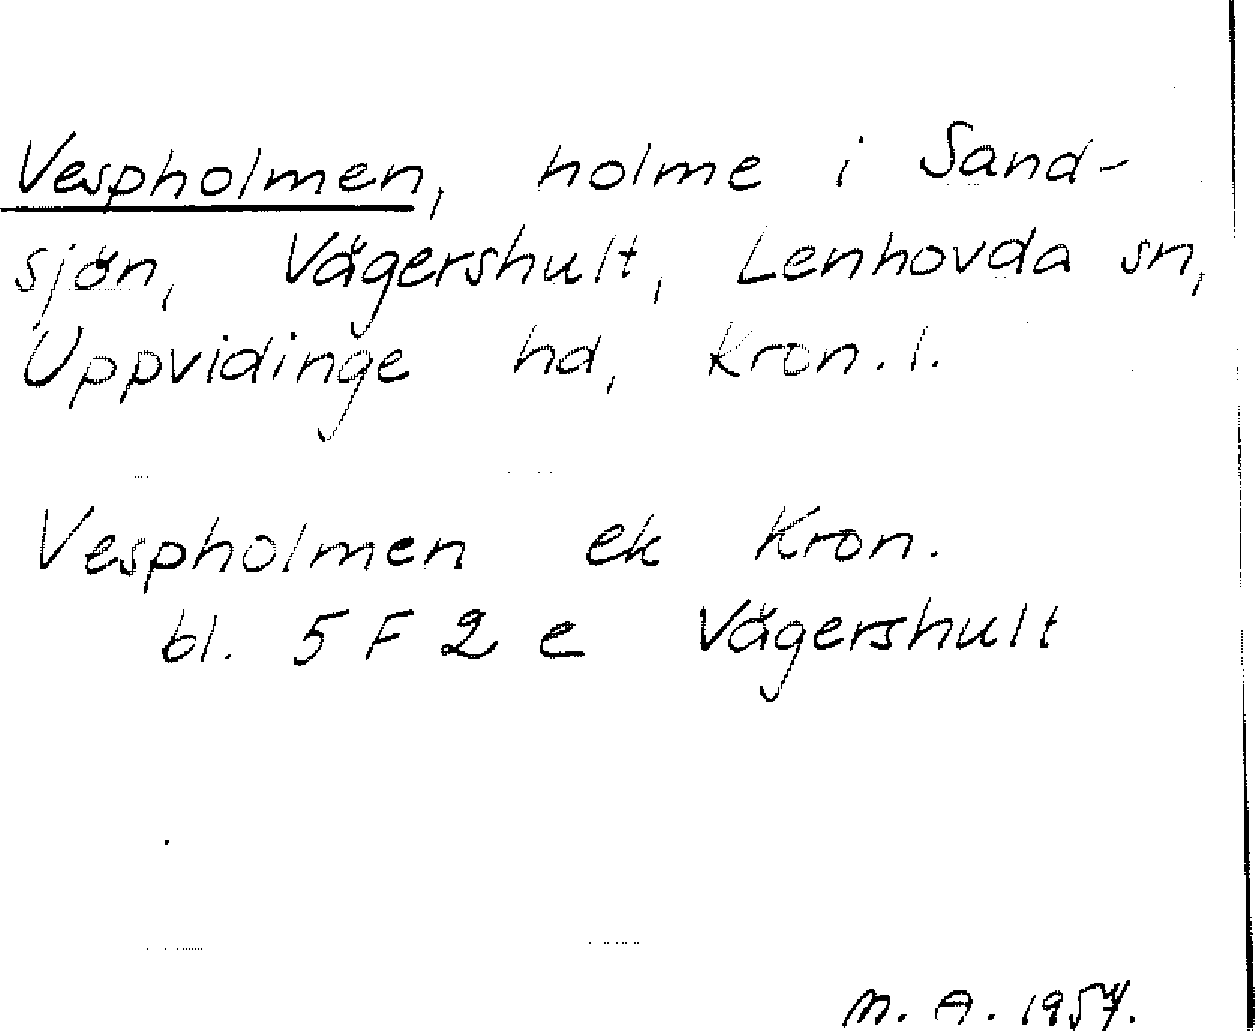 Vespholmen, holme i Sand-
sjön, Vägershult, Lenhovda sn,
Uppvidinge hd, Kron. l.
Vespholmen ek Kron.
bl. 5 F 2 e Vägershult
M. A. 1957.